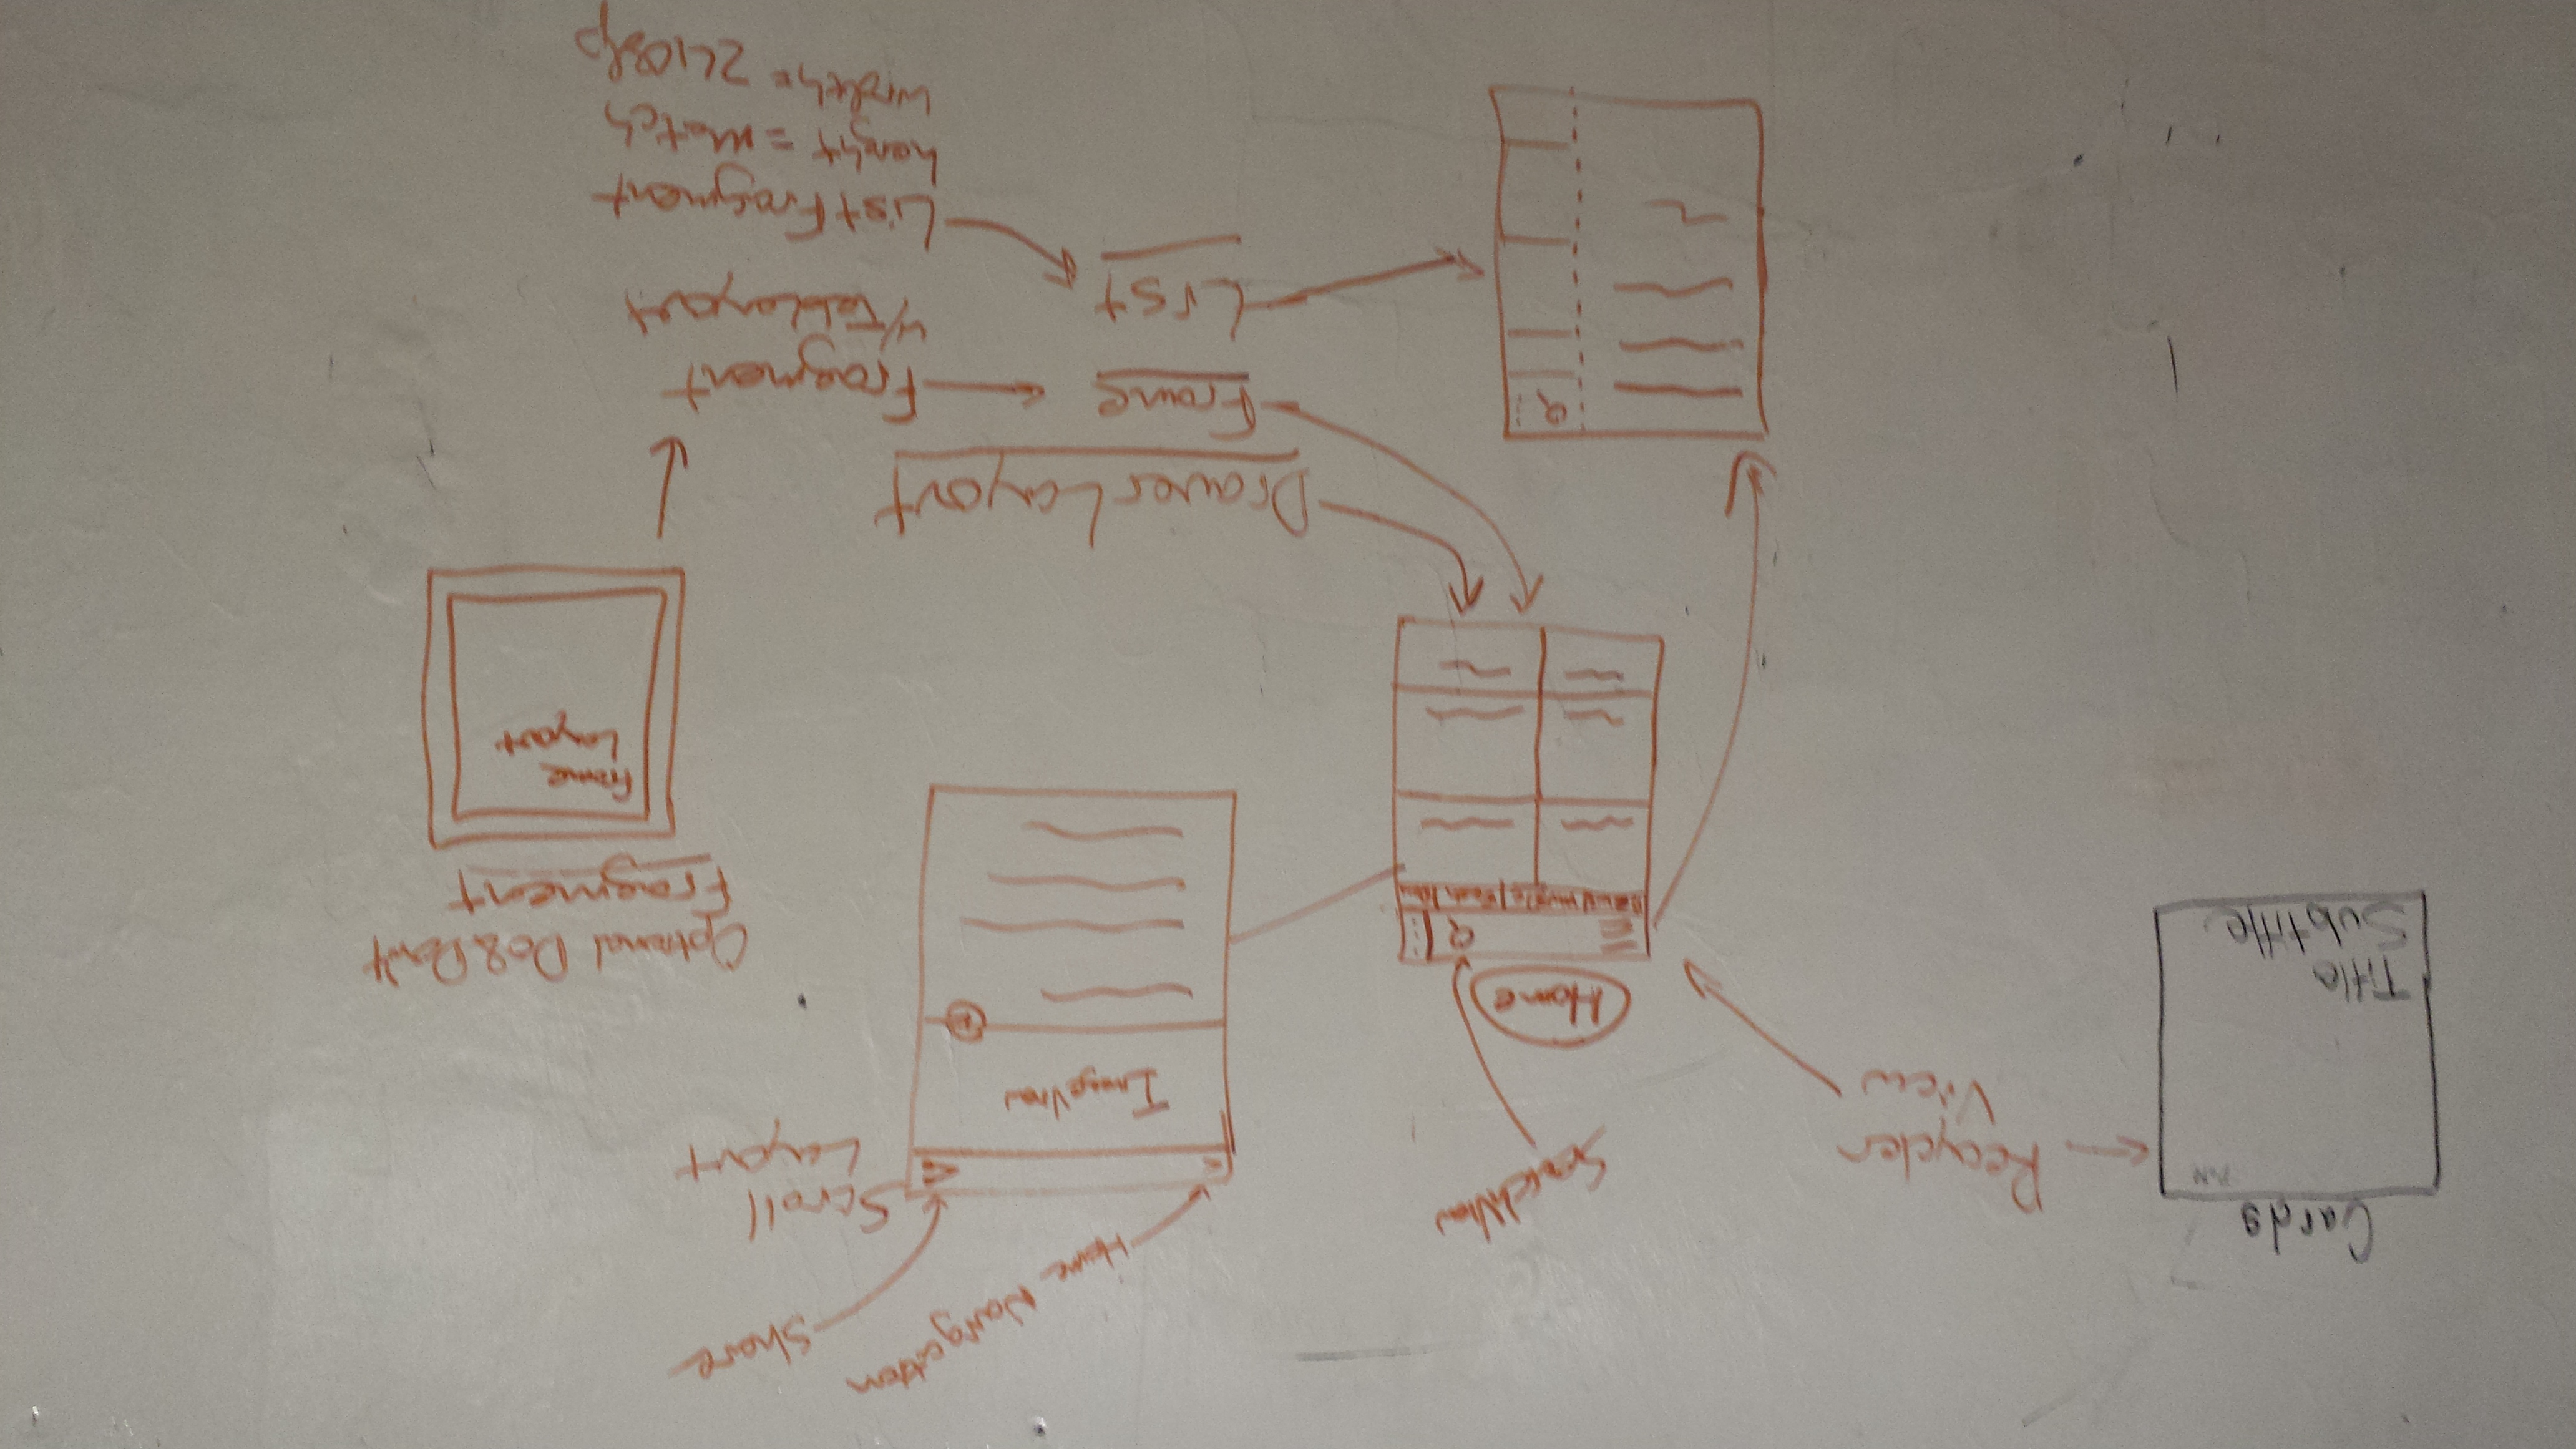 Cards
Title
Subtitle
Recycler
View
SearchView
Home
Home Navigation
Share
Scroll
Layout
ImageView
Optional Do & Don't
Fragment
Frame
Layout
DrawerLayout
Frame
List
Fragment
w/TabLayout
ListFragment
height = match
width = 240dp